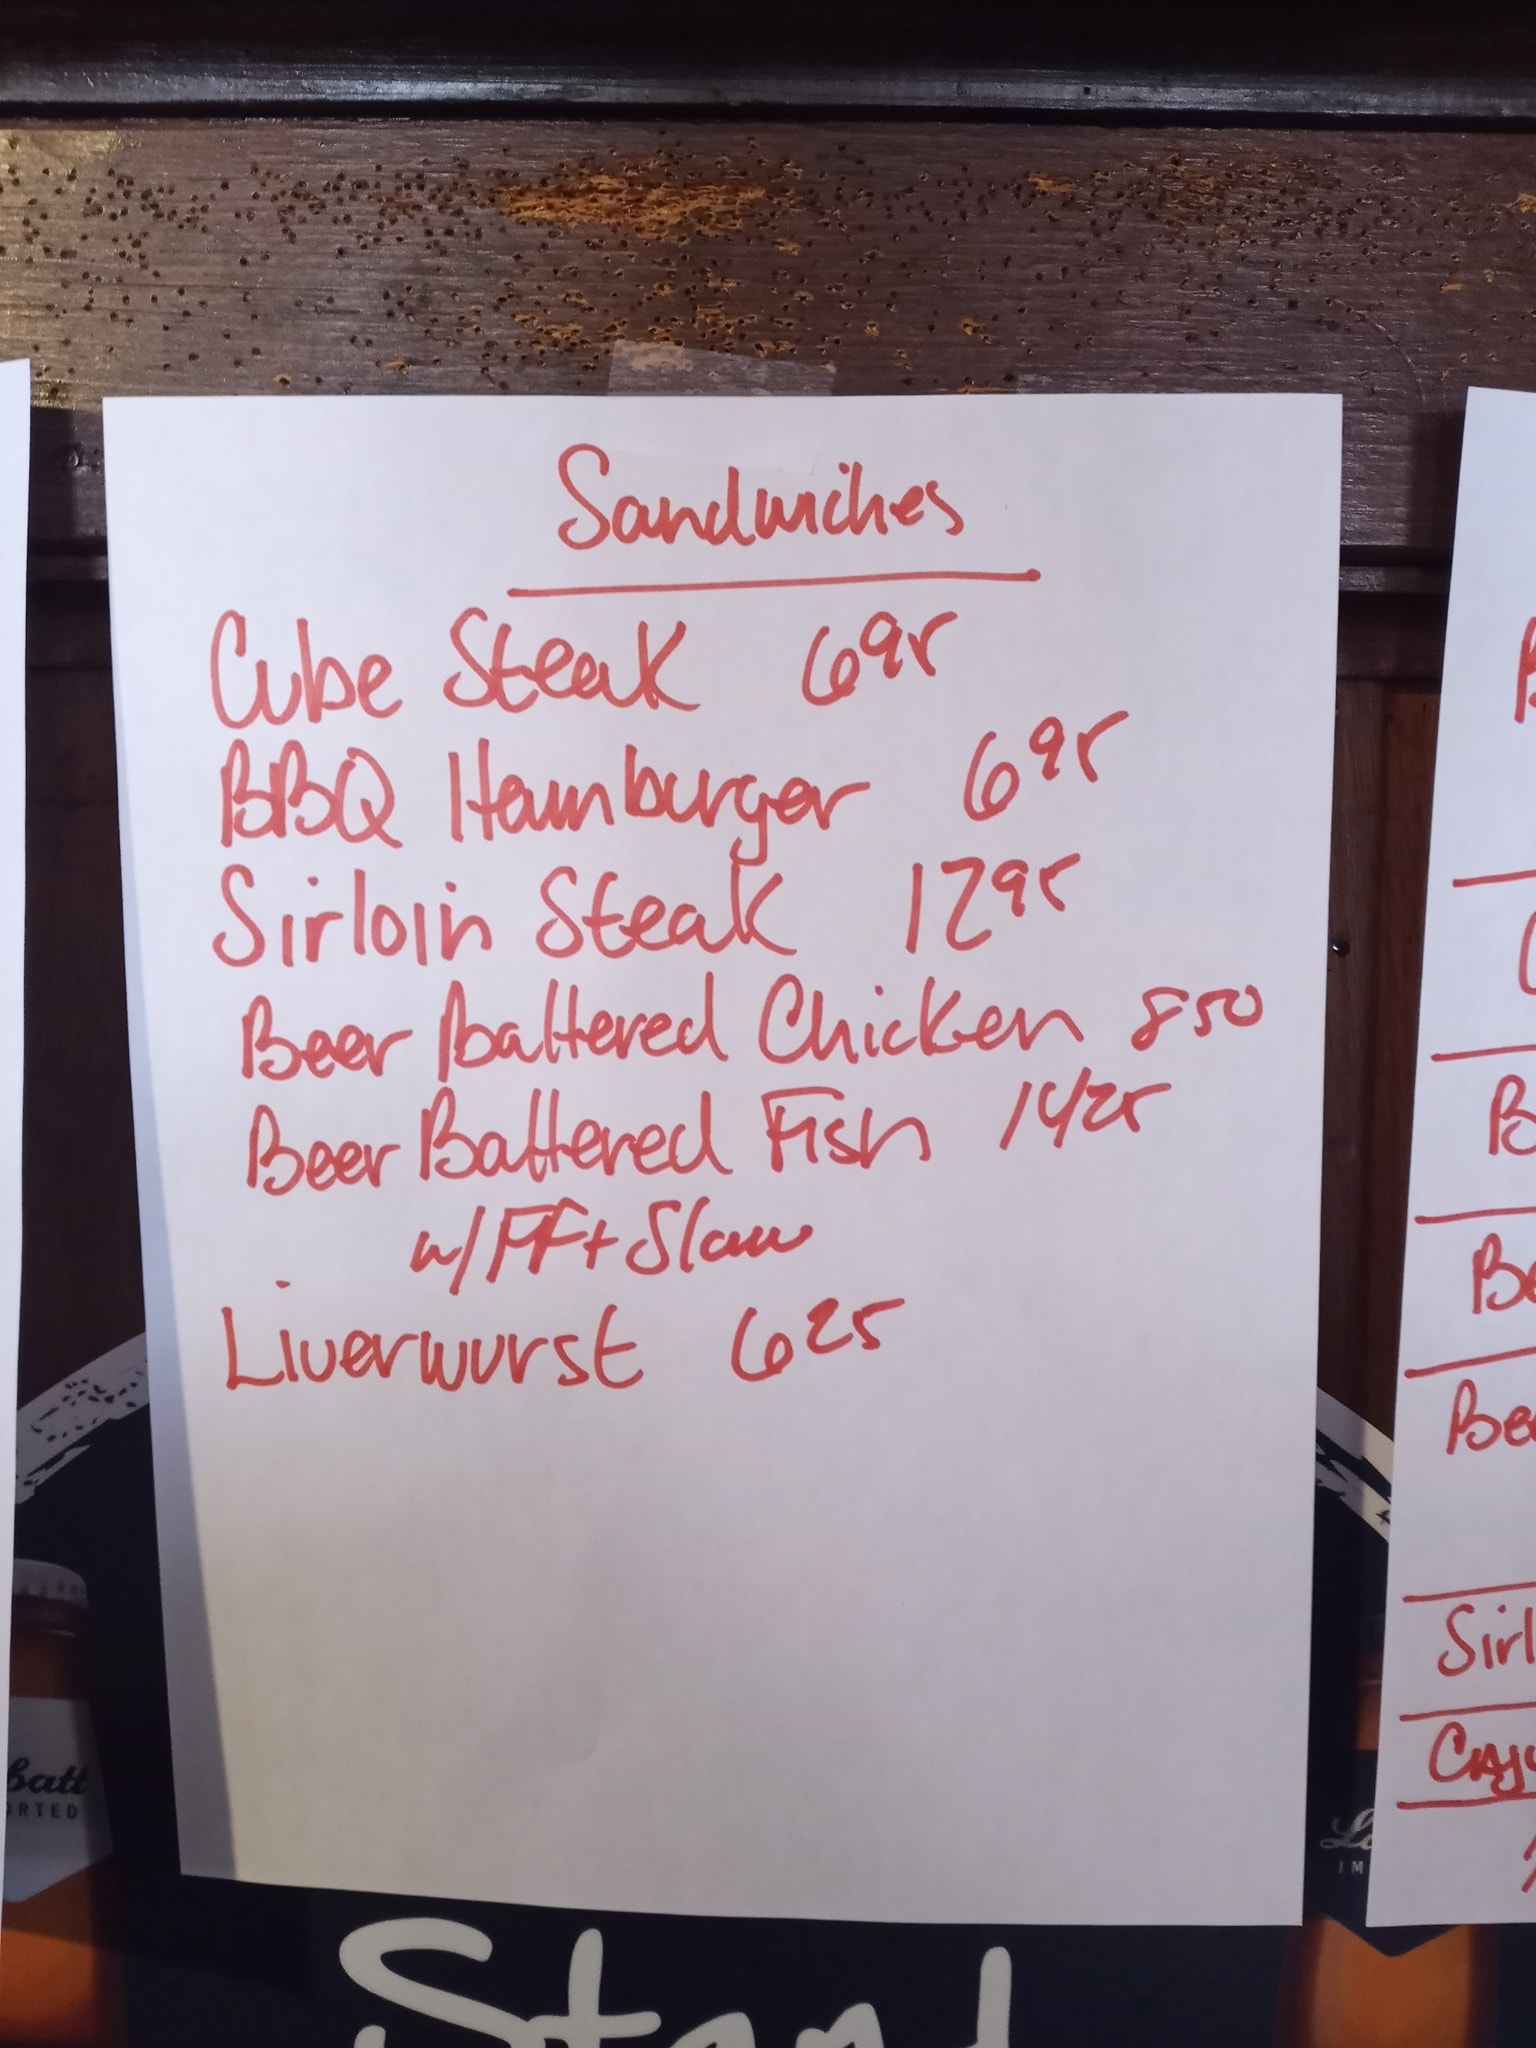 Sandwiches
Cube Steak 6 95
BBQ Hamburger 6 95
Sirloin Steak 12 95
Beer Battered Chicken 8 50
Beer Battered Fish 14 25
w/ FF + Slaw
Liverwurst 6 25
B
C
B
Be
Bee
Sirl
Caju
batt
ORTED
La
IM
Stand